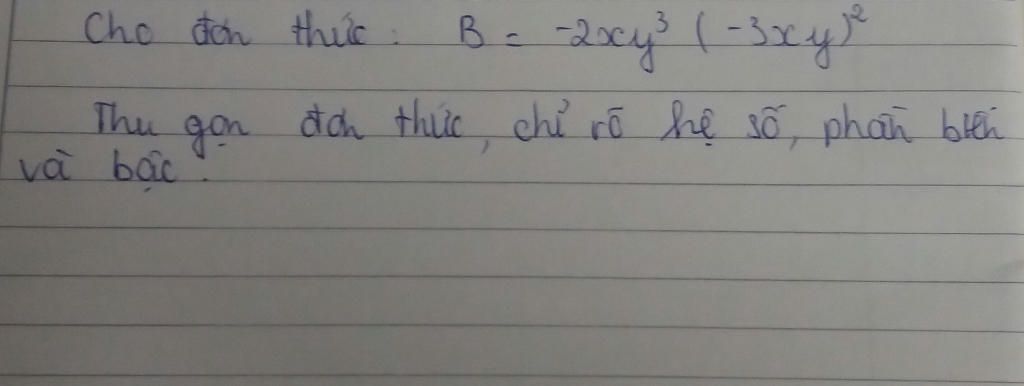 Cho đơn thức : B = -2xy³ (-3xy)²
Thu gọn đơn thức, chỉ rõ hệ số, phần biến
và bậc.